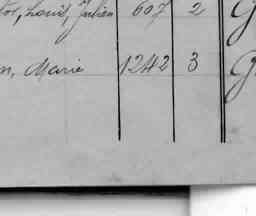 Louis Julien 607 2 G
n, Marie 1242 3 G